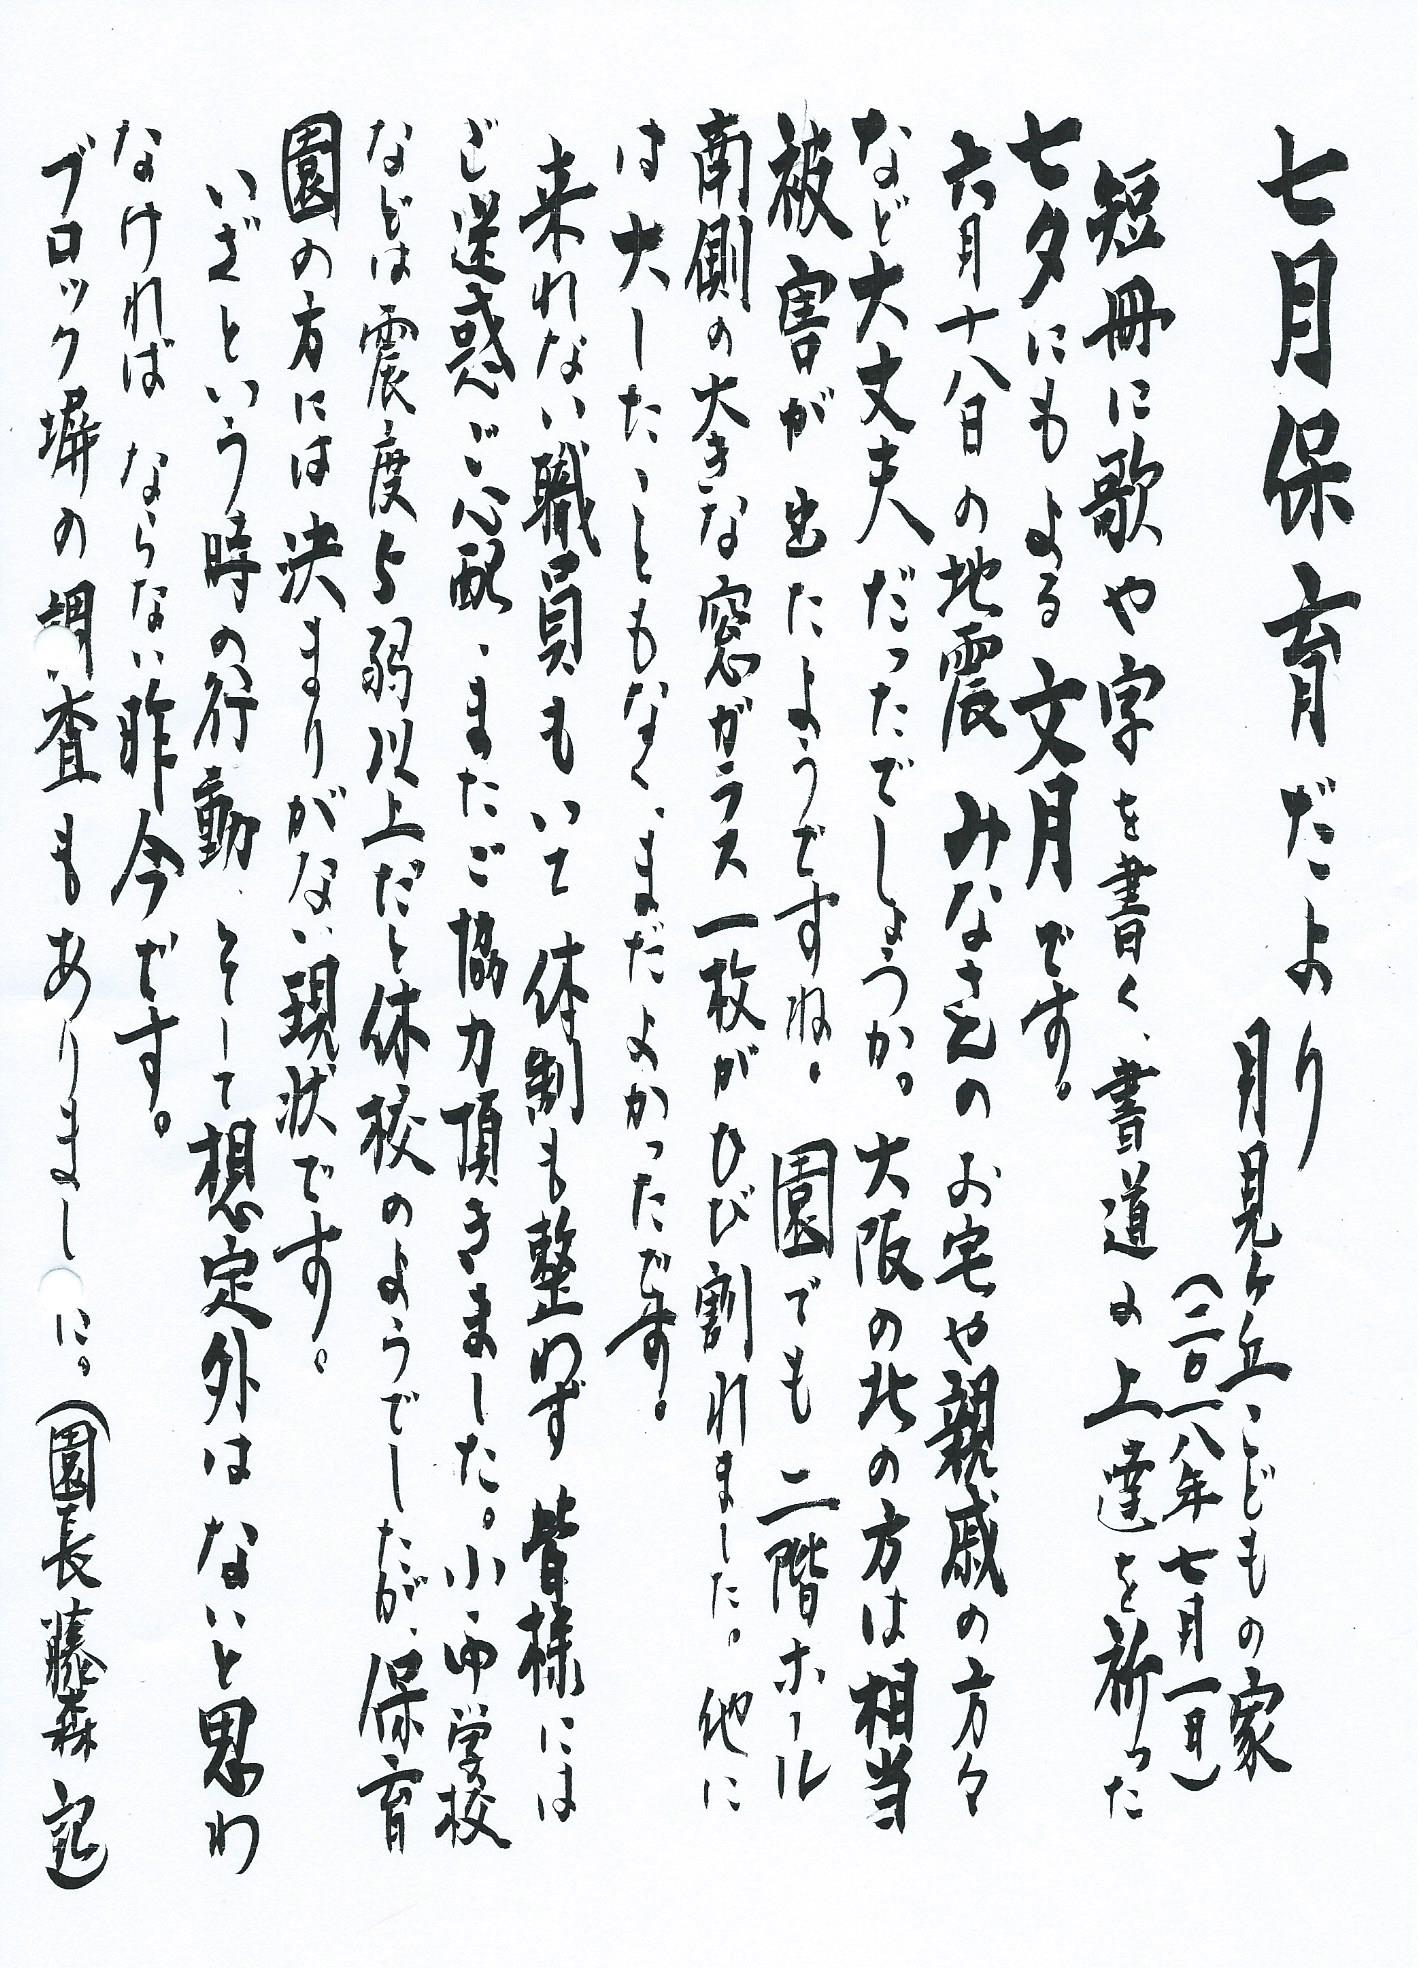 七月保育だより
月見ヶ丘こどもの家
(二〇一八年七月一日)
短冊に歌や字を書く、書道の上達を祈った
七夕にもよる文月です。
六月十八日の地震 みなさんのお宅や親戚の方々
など大丈夫だったでしょうか。大阪の北の方は相当
被害が出たようですね。園でも二階ホール
南側の大きな窓ガラス一枚がひび割れました。他に
は大したこともなく、まだよかったです。
来れない職員もいて体制も整わず皆様には
ご迷惑ご心配、またご協力頂きました。小・中学校
などは震度5弱以上だと休校のようでしたが、保育
園の方には決まりがない現状です。
いざという時の行動、そして想定外はないと思わ
なければならない昨今です。
ブロック塀の調査もありましに。(園長藤森記)